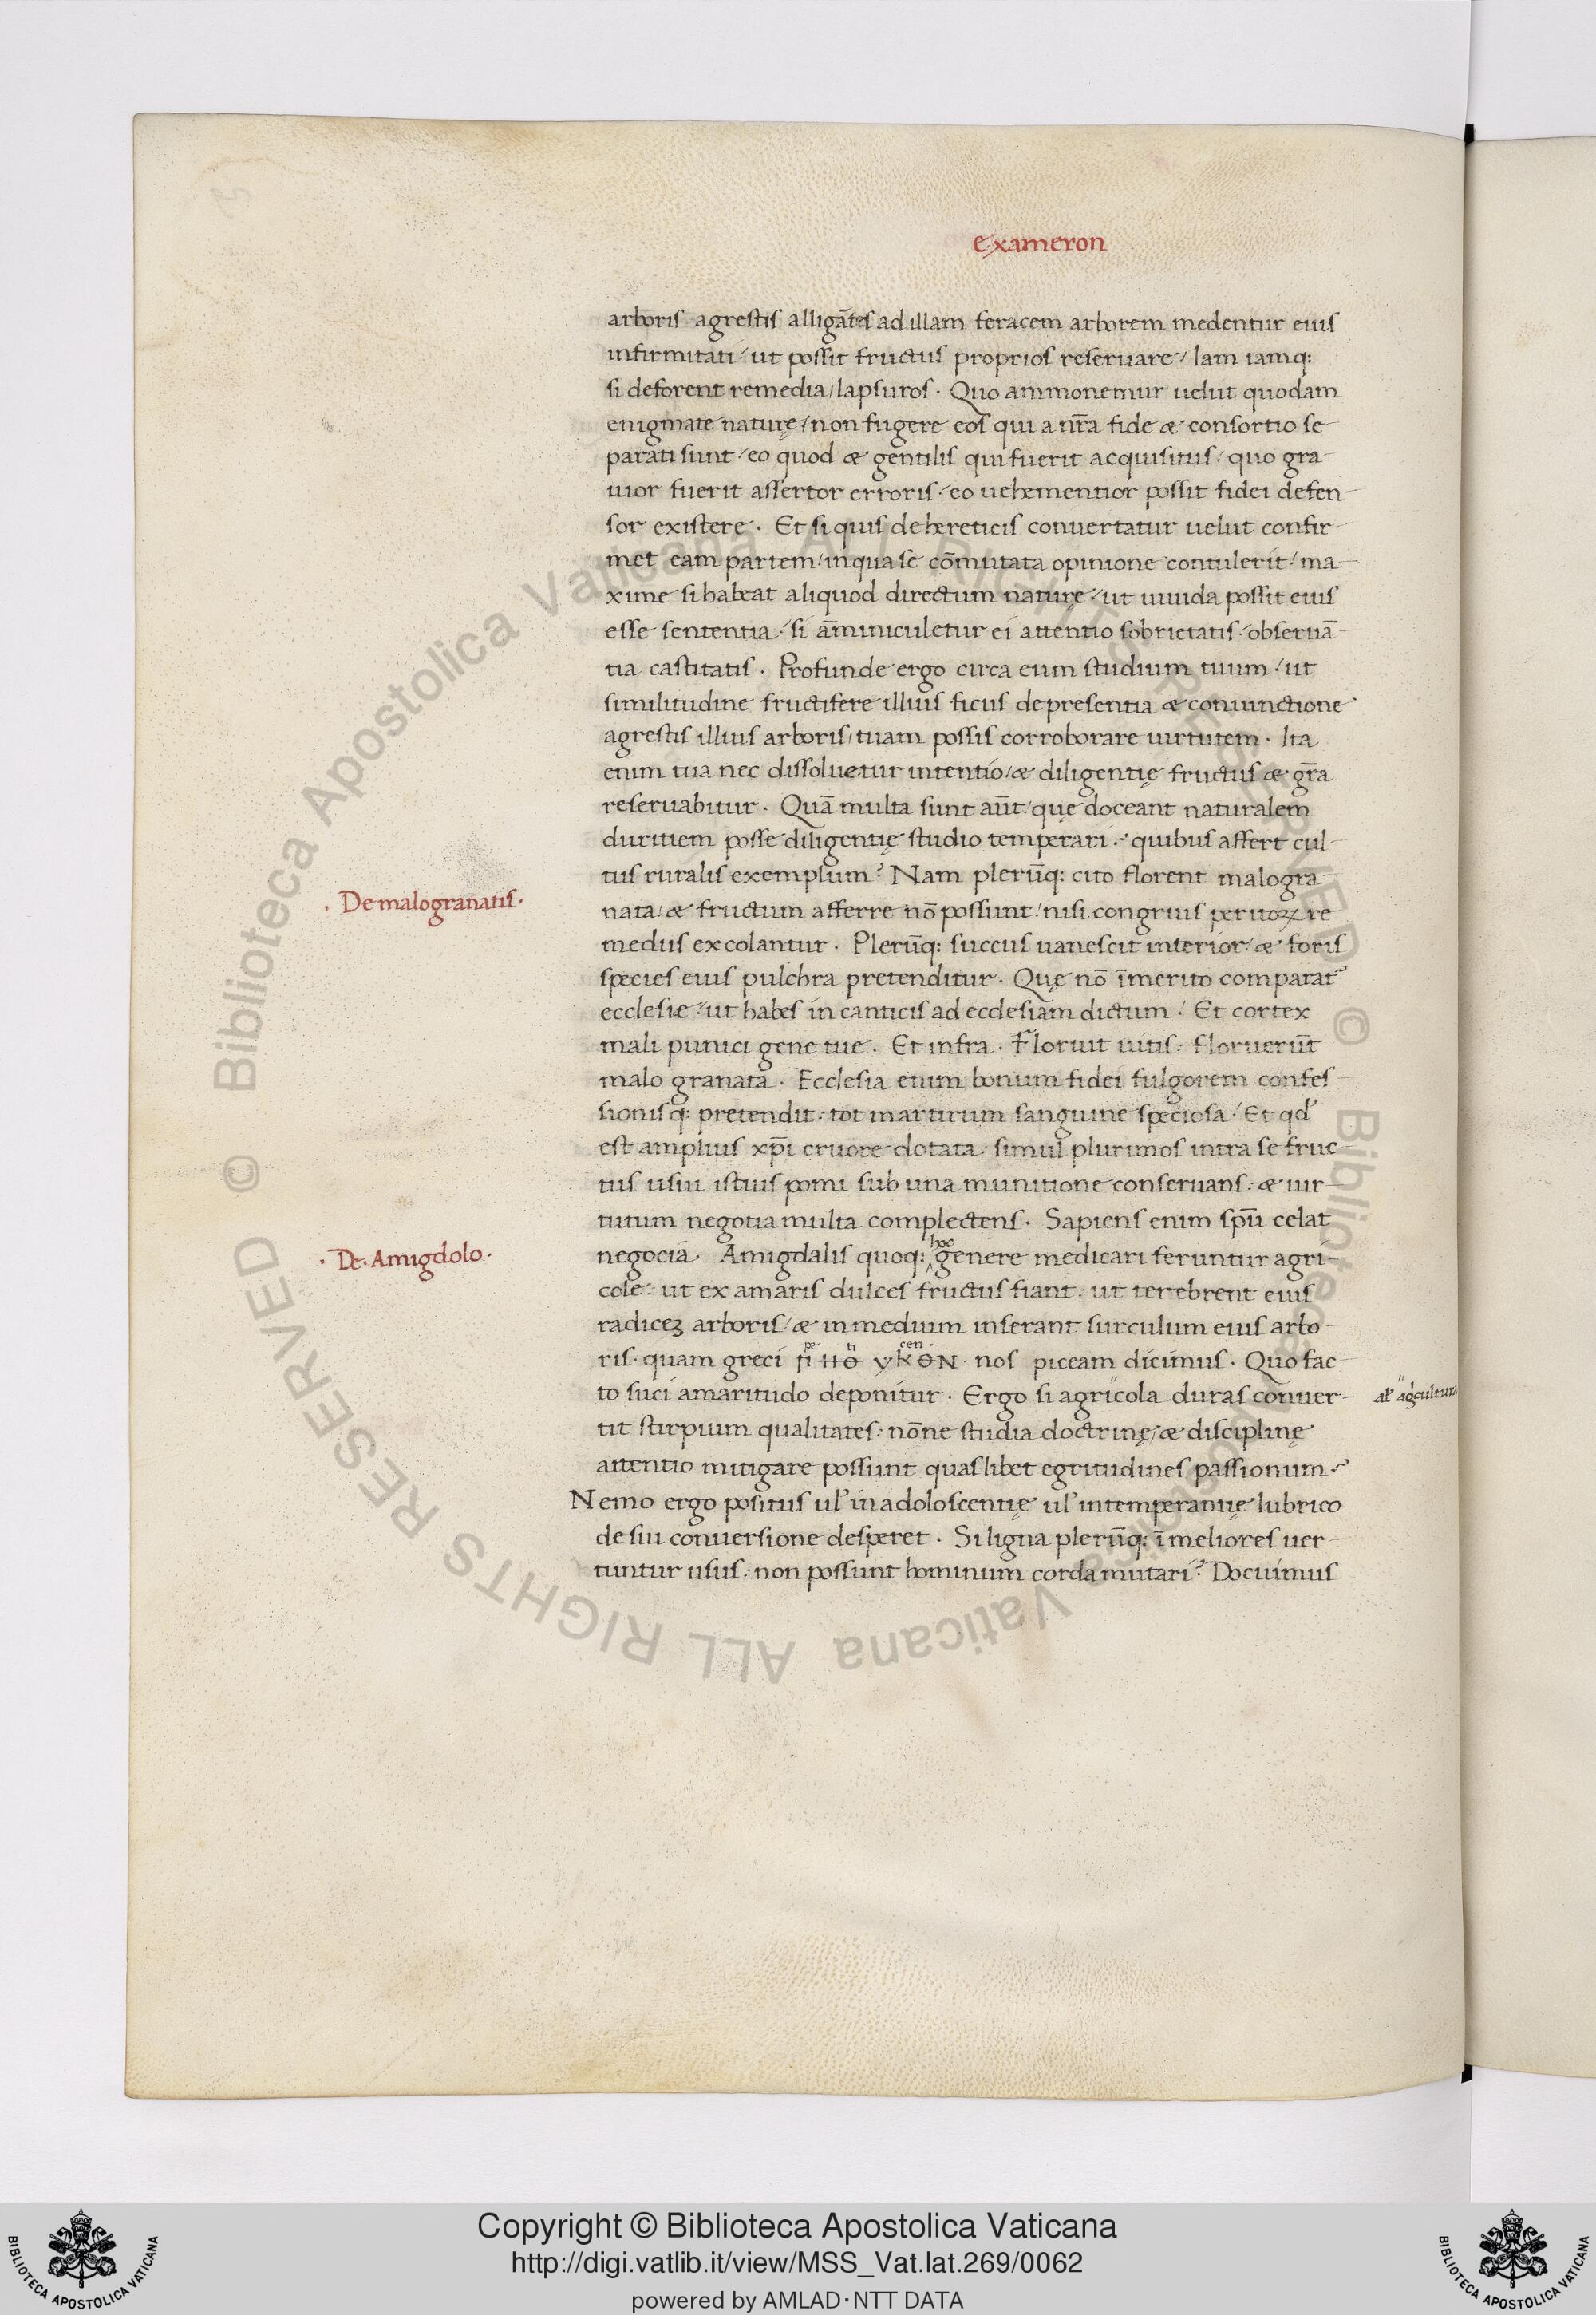 exameron
arboris agrestis alligãtes ad illam feracem arborem medentur eius
infirmitati / ut possit fructus proprios reseruare / Iam iamq:
si deforent remedia / lapsuros · Quo ammonemur uelut quodam
enigmate naturę / non fugere eos qui a nr̃a fide & consortio se-
parati sunt / eo quod & gentilis qui fuerit acquisitus / quo gra-
uior fuerit assertor erroris / eo uehementior possit fidei defen-
sor existere · Et si quis de hereticis conuertatur uelut confir-
met eam partem / in qua se cõmutata opinione contulerit / ma-
xime si habeat aliquod directum naturę / ut uiuida possit eius
esse sententia / si ãminiculetur ei attentio sobrietatis / obseruã-
tia castitatis · Profunde ergo circa eum studium tuum / ut
similitudine fructifere illius ficus de presentia & coniunctione
agrestis illius arboris / tuam possis corroborare uirtutem · Ita
enim tua nec dissoluetur intentio / & diligentię fructus & gr̃a
reseruabitur · Quã multa sunt aũt / quę doceant naturalem
duritiem posse diligentię studio temperari · quibus affert cul-
tus ruralis exemplum? Nam plerũq: cito florent malogra-
· De malogranatis ·
nata / & fructum afferre nõ possunt / nisi congruis peritoꝝ re
mediis excolantur · Plerũq: succus uanescit interior / & foris
species eius pulchra pretenditur · Quę nõ ĩmerito comparat᷑
ecclesie / ut habes in canticis ad ecclesiam dictum / Et cortex
mali punici gene tue · Et infra · Floruit uitis : floruerũt
malo granata · Ecclesia enim bonum fidei fulgorem confes-
sionisq: pretendit : tot martirum sanguine speciosa / Et qd'
est amplius xp̃i cruore dotata · simul plurimos intra se fruc-
tus usui istius pomi sub una munitione conseruans : & uir-
tutum negotia multa complectens · Sapiens enim spũ celat
· De · Amigdolo ·
negocia · Amigdalis quoq: hoc genere medicari feruntur agri-
cole : ut ex amaris dulces fructus fiant : ut terebrent eius
radiceꝫ arboris / & in medium inserant surculum eius arbo-
ris · quam greci nos piceam dicimus · Quo fac-
to suci amaritudo deponitur · Ergo si agricola duras conuer-
al' ag'cultura
tit stirpium qualitates : nõne studia doctrinę / & disciplinę
attentio mitigare possunt quaslibet egritudines passionum?
Nemo ergo positus ul' in adoloscentię ul' intemperantię lubrico
de sui conuersione desperet · Si ligna plerũq: ĩ meliores uer-
tuntur usus : non possunt hominum corda mutari? Docuimus
© Biblioteca Apostolica Vaticana ALL RIGHTS RESERVED
© Biblioteca Apostolica Vaticana ALL RIGHTS RESERVED
Copyright © Biblioteca Apostolica Vaticana
http://digi.vatlib.it/view/MSS_Vat.lat.269/0062
powered by AMLAD·NTT DATA
BIBLIOTECA APOSTOLICA VATICANA
BIBLIOTECA APOSTOLICA VATICANA